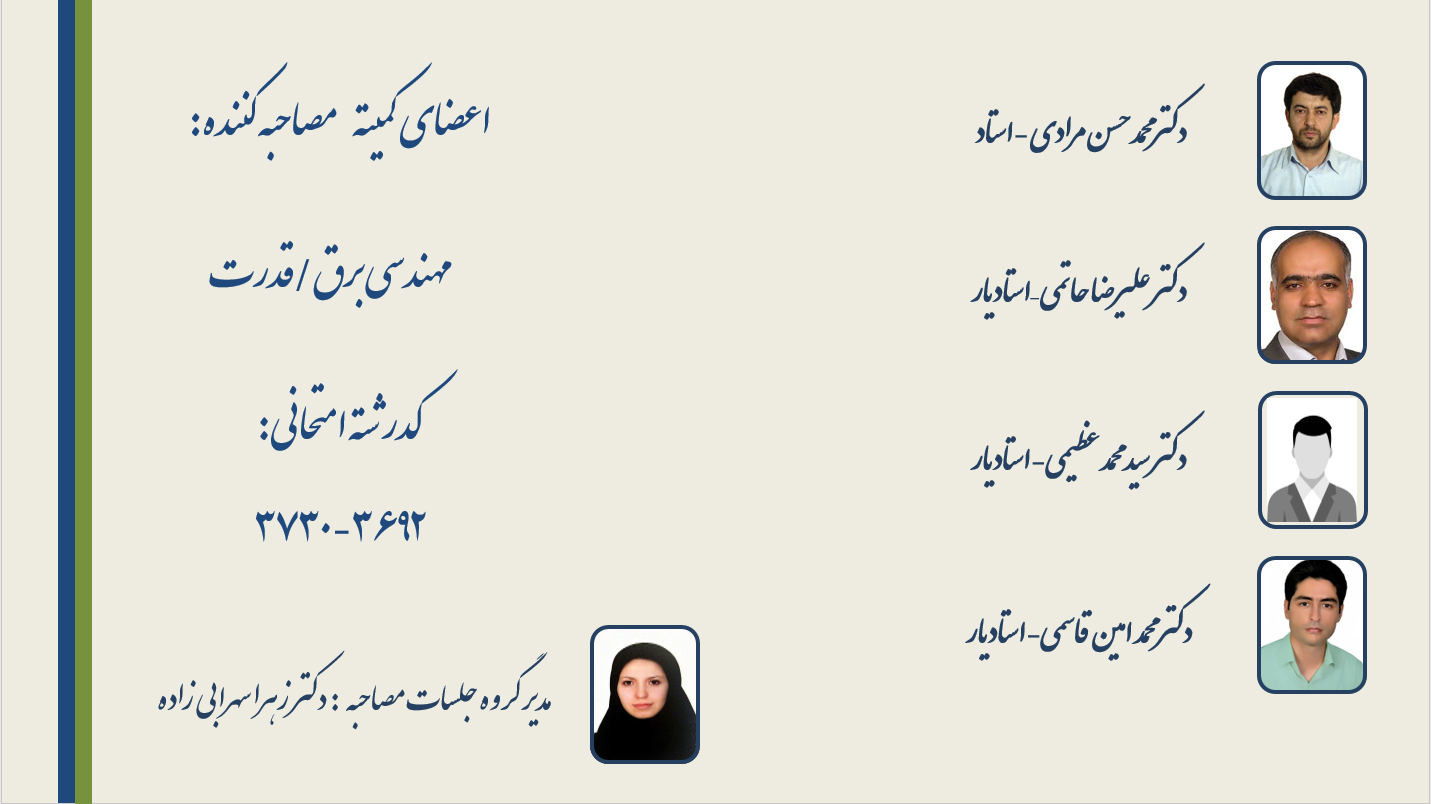 اعضای کمیته مصاحبه کننده:
مهندسی برق / قدرت
کد رشته امتحانی:
۳۷۳۰-۳۶۹۲
دکتر محمد حسن مرادی - استاد
دکتر علیرضا حاتمی-استادیار
دکتر سید محمد عظیمی- استادیار
دکتر محمد امین قاسمی- استادیار
مدیر گروه جلسات مصاحبه : دکتر زهرا سهرابی زاده